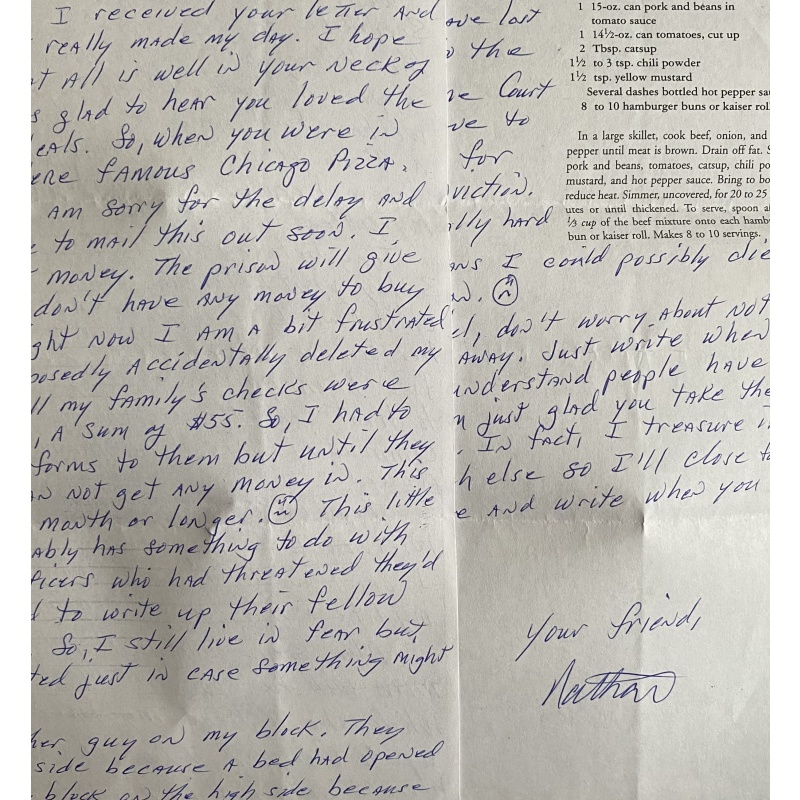 I received your letter and
really made my day. I hope
t all is well in your neck of
s glad to hear you loved the
eals. So, when you were in
ere famous Chicago Pizza.
am sorry for the delay and
e to mail this out soon. I
money. The prison will give
don't have any money to buy
ght now I am a bit frustrated
posedly accidentally deleted my
ll my family's checks were
, a sum of $55. So, I had to
forms to them but until they
an not get any money in. This
month or longer. This little
ably has something to do with
ficers who had threatened they'd
d to write up their fellow
So, I still live in fear but
ted just in case something might
her guy on my block. They
side because a bed had opened
block on the high side because
ave lost
o the
he Court
ve to
for
viction.
lly hard
ans I could possibly die
n.
el, don't worry about not
away. Just write when
understand people have
m just glad you take the
. In fact, I treasure i
h else so I'll close to
e and write when you
Your friend,
Nathan
1 15-oz. can pork and beans in
tomato sauce
1 14½-oz. can tomatoes, cut up
2 Tbsp. catsup
1½ to 3 tsp. chili powder
1½ tsp. yellow mustard
Several dashes bottled hot pepper sau
8 to 10 hamburger buns or kaiser roll
In a large skillet, cook beef, onion, and
pepper until meat is brown. Drain off fat. S
pork and beans, tomatoes, catsup, chili po
mustard, and hot pepper sauce. Bring to bo
reduce heat. Simmer, uncovered, for 20 to 25
utes or until thickened. To serve, spoon a
⅓ cup of the beef mixture onto each hamb
bun or kaiser roll. Makes 8 to 10 servings.